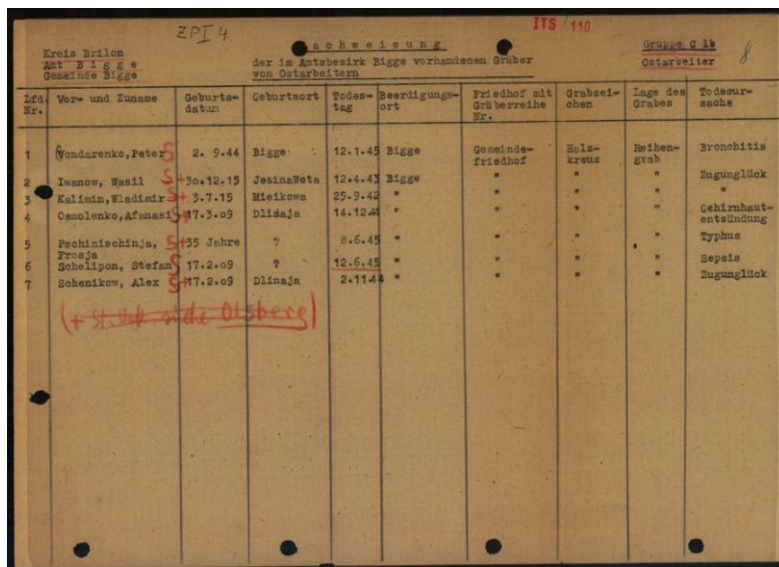 ZPI 4
ITS 110
Kreis Brilon
Amt Bigge
Gemeinde Bigge
Nachweisung
der im Amtsbezirk Bigge vorhandenen Gräber
von Ostarbeitern
Gruppe C 1b
Ostarbeiter
8
Lfd. Nr. Vor- und Zuname Geburts-datum Geburtsort Todes-tag Beerdigungs-ort Friedhof mit Gräberreihe Nr. Grabzei-chen Lage des Grabes Todesur-sache
1 Wondarenko, Peter S 2. 9.44 Bigge 12.1.45 Bigge Gemeinde-friedhof Holz-kreuz Reihen-grab Bronchitis
2 Iwanow, Wasil S + 30.12.15 JesinaWeta 12.4.43 Bigge " " " Zugunglück
3 Kalimin, Wladimir S + 3.7.15 Mieikowa 25.9.42 " " " " "
4 Osmolenko, Afanasi S + 17.3.09 Dlidaja 14.12.44 " " " " Gehirnhaut-entzündung
5 Pschinischinja, Frosja S + 35 Jahre ? 8.6.45 " " " " Typhus
6 Schelipon, Stefan S 17.2.09 ? 12.6.45 " " " " Sepsis
7 Schenikow, Alex S + 17.2.09 Dlinaja 2.11.44 " " " " Zugunglück
(+ siehe Olsberg)